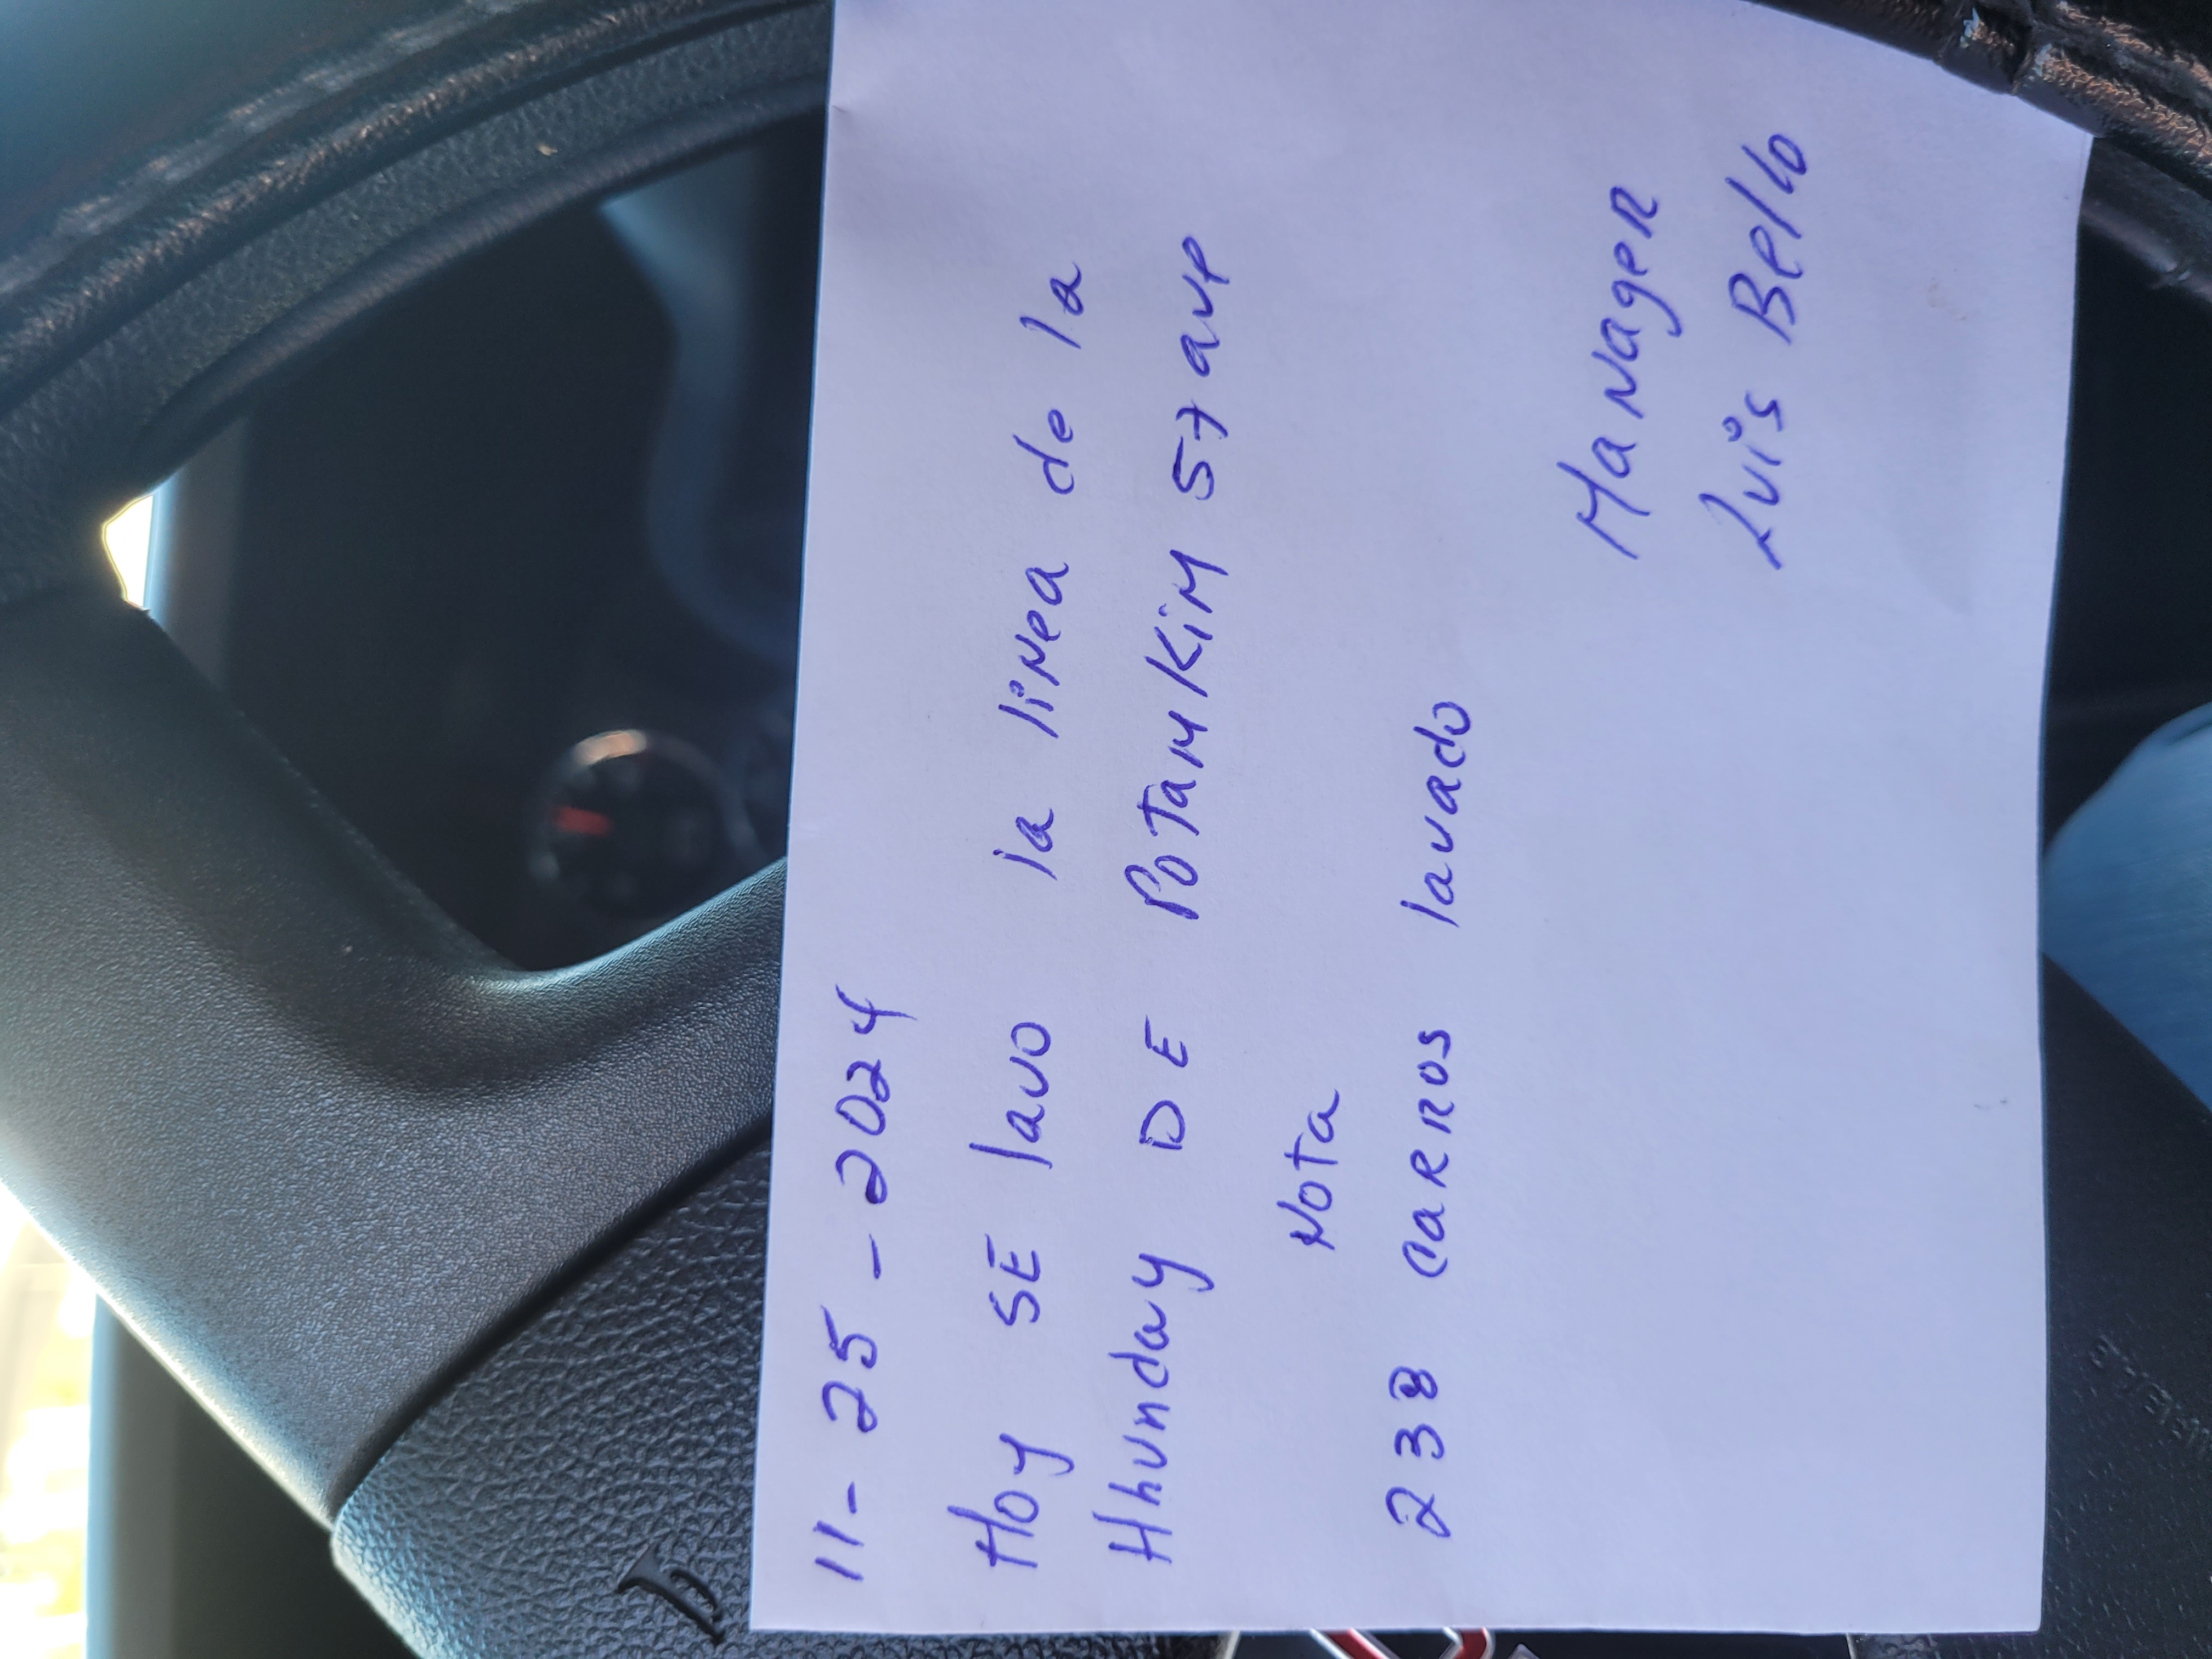 11-25-2024
Hoy SE lavo la linea de la
Hhunday DE Potamkim 57 ave
Nota
238 carros lavado
Manager
Luis Bello